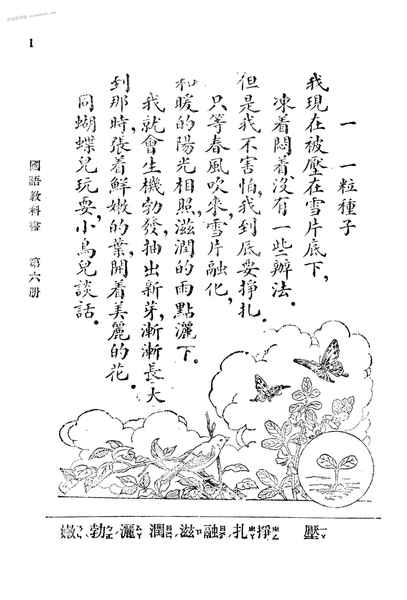 一 一粒種子
我現在被壓在雪片底下，
凍着悶着沒有一些辦法。
但是我不害怕，我到底要掙扎，
只等春風吹來，雪片融化，
和暖的陽光相照，滋潤的雨點灑下。
我就會生機勃發，抽出新芽，漸漸長大
到那時，張着鮮嫩的葉，開着美麗的花。
同蝴蝶兒玩耍，小鳥兒談話。
壓 掙 扎 融 滋 潤 灑 勃 嫩
國語教科書 第六册
1